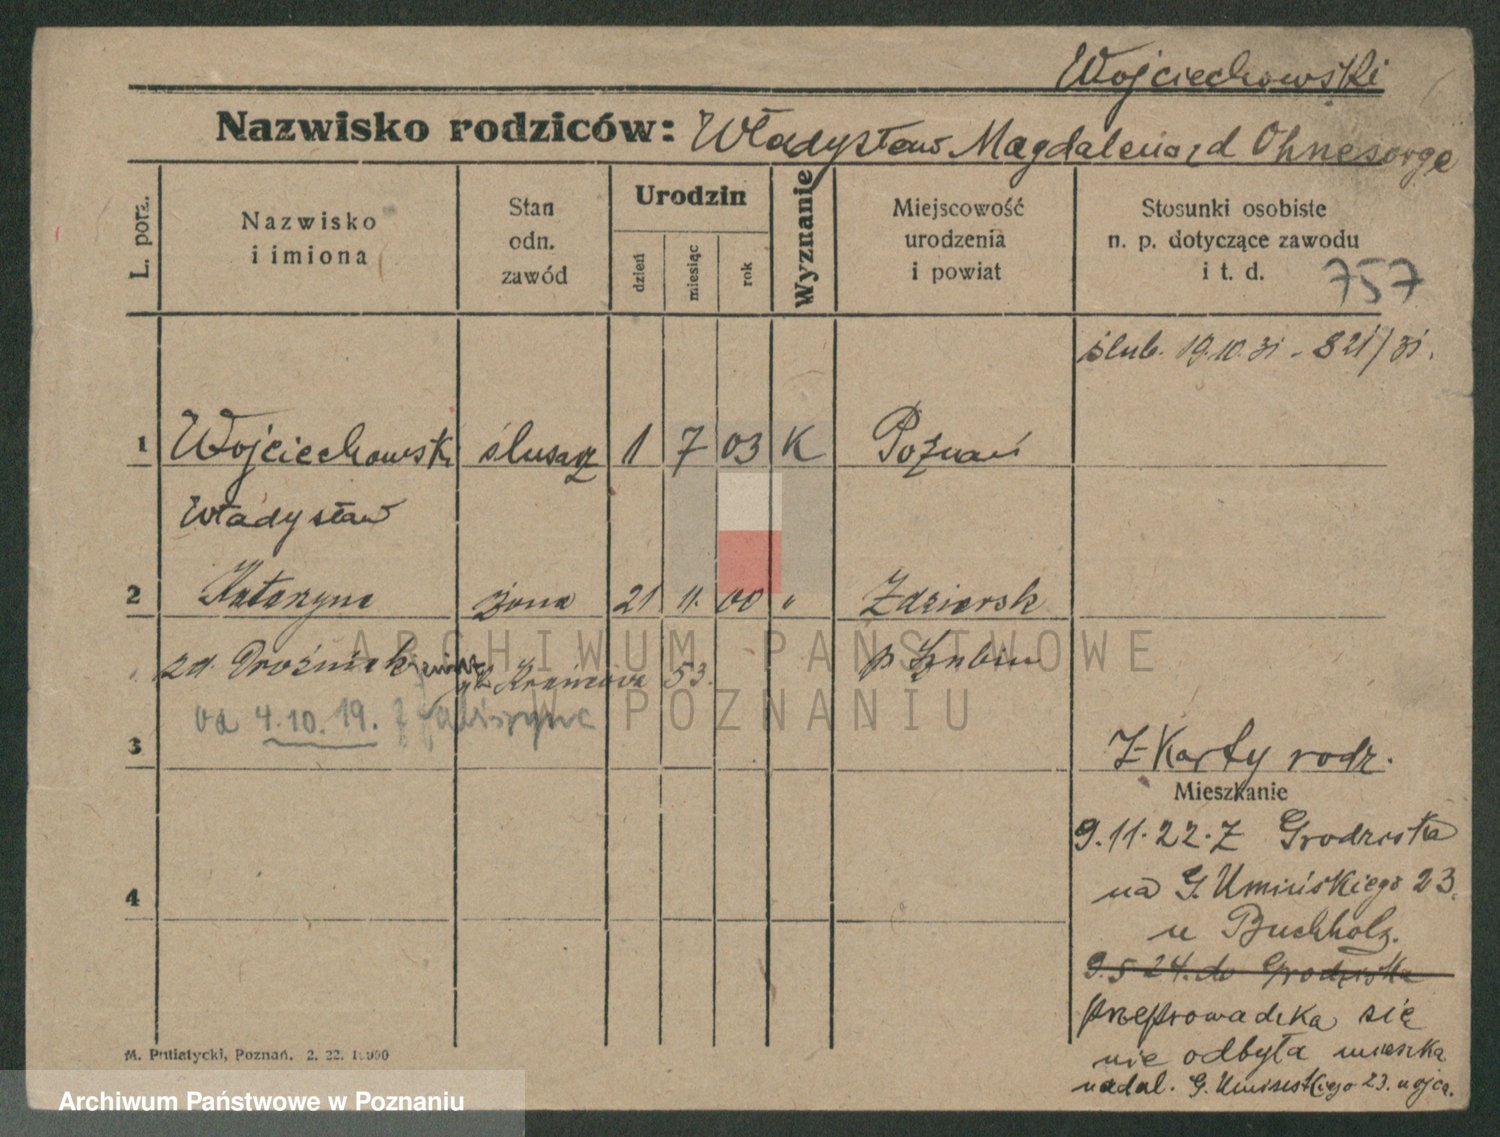 Wojciechowski
Nazwisko rodziców: Władysław Magdalena zd Ohnesorge
L. porz.
Nazwisko
i imiona
Stan
odn.
zawód
Urodzin
dzień
miesiąc
rok
Wyznanie
Miejscowość
urodzenia
i powiat
Stosunki osobiste
n. p. dotyczące zawodu
i t. d.
757
ślub. 19.10.31 - 821/31.
1 Wojciechowski ślusarz 1 7 03 K Poznań
Władysław
2 Katarzyna żona 21 11. 00 " Zdziersk
zd. Droźniak Krańcowa 53. p Szubin
od 4.10.19. z
3
Z Karty rodz.
Mieszkanie
9.11.22. Z Grodziska
na G. Umińskiego 23.
u Buchholz.
9.5 24. do Grodziska
przeprowadzka się
nie odbyła mieszka
nadal. G. Umińskiego 23. u ojca.
4
M. Putiatycki, Poznań. 2. 22. 10000
ARCHIWUM PAŃSTWOWE
W POZNANIU
Archiwum Państwowe w Poznaniu